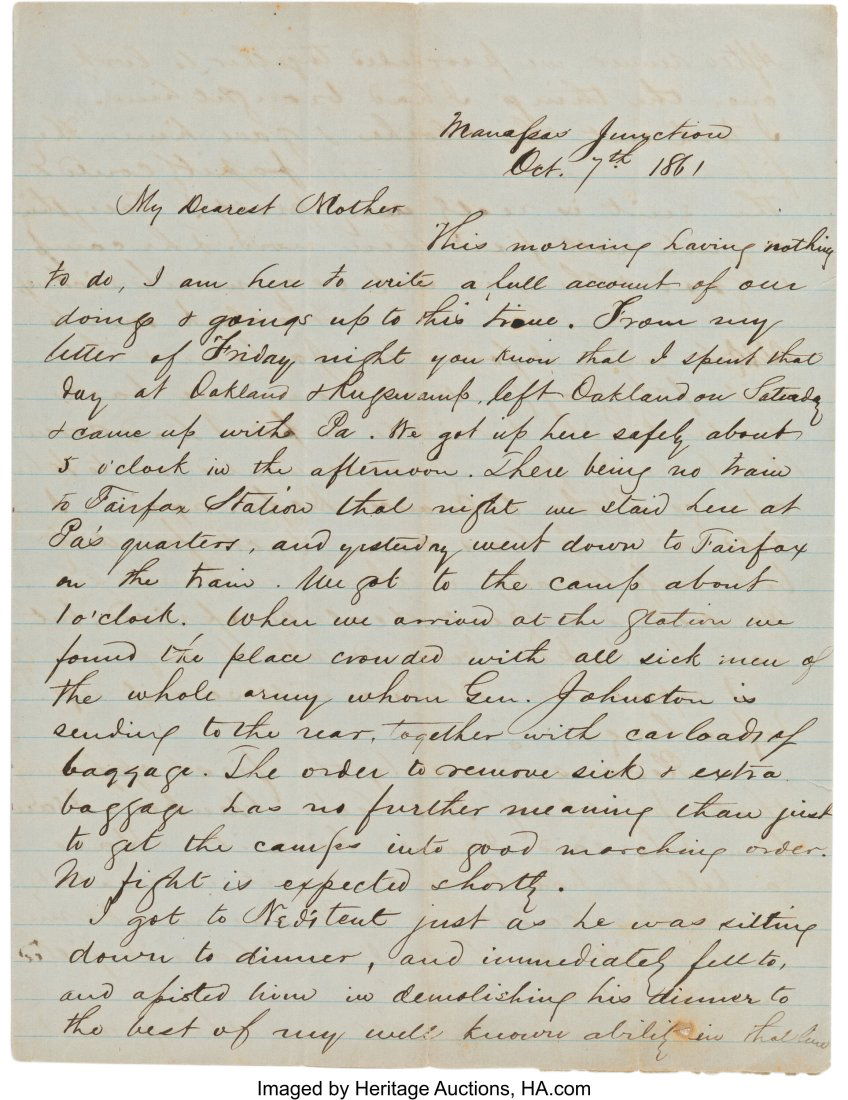 Manassas Junction
Oct. 7th 1861
My Dearest Mother
This morning having nothing
to do, I am here to write a full account of our
doings & goings up to this time. From my
letter of Friday night you know that I spent that
day at Oakland & Rugswamp, left Oakland on Saturday
& came up with Pa. We got up here safely about
5 o'clock in the afternoon. There being no train
to Fairfax Station that night we staid here at
Pa's quarters, and yesterday went down to Fairfax
on the train. We got to the camp about
1 o'clock. When we arrived at the station we
found the place crowded with all sick men of
the whole army whom Gen. Johnston is
sending to the rear, together with carloads of
baggage. The order to remove sick & extra
baggage has no further meaning than just
to get the camps into good marching order.
No fight is expected shortly.
I got to Ned's tent just as he was sitting
down to dinner, and immediately fell to,
and assisted him in demolishing his dinner to
the best of my well known ability in that line
Imaged by Heritage Auctions, HA.com